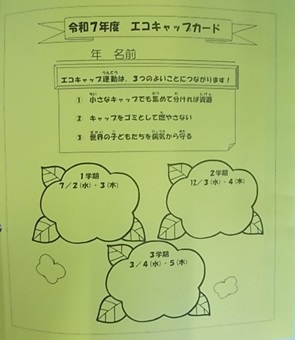 令和7年度 エコキャップカード
年 名前
エコキャップ運動は、3つのよいことにつながります!
① 小さなキャップでも集めて分ければ資源
② キャップをゴミとして燃やさない
③ 世界の子どもたちを病気から守る
1学期
7/2(水)・3(木)
2学期
12/3(水)・4(木)
3学期
3/4(水)・5(木)